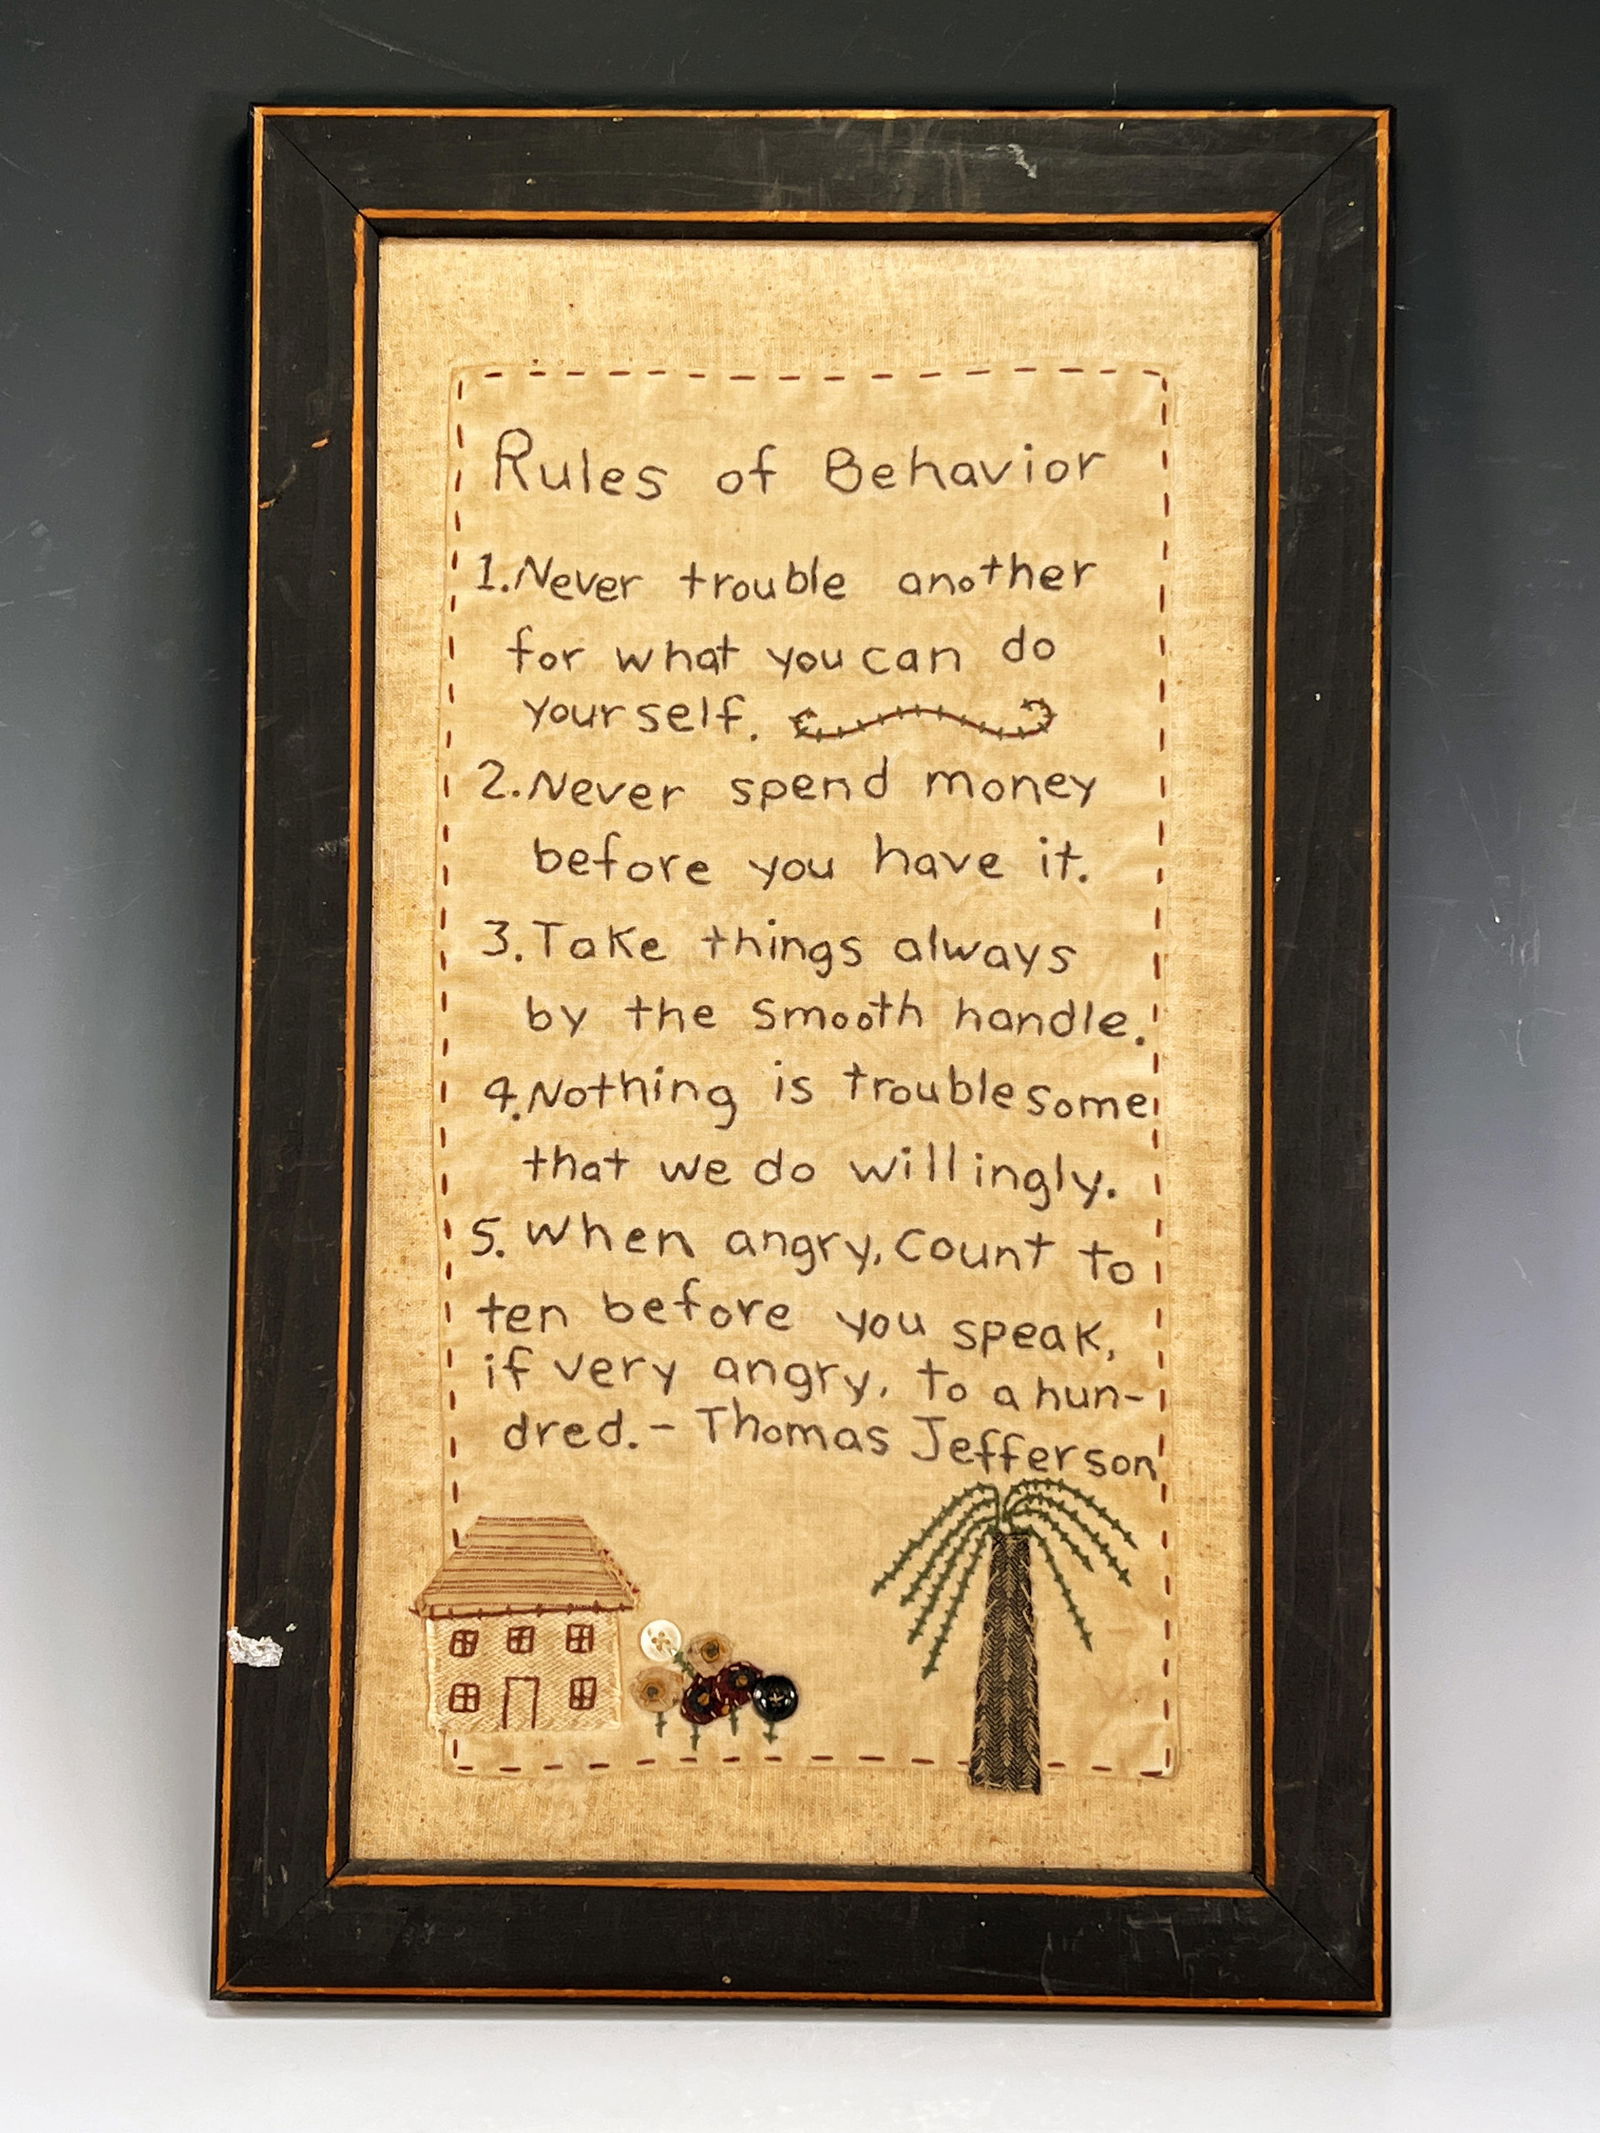 Rules of Behavior
1. Never trouble another
for what you can do
yourself.
2. Never spend money
before you have it.
3. Take things always
by the smooth handle.
4. Nothing is troublesome
that we do willingly.
5. When angry, count to
ten before you speak,
if very angry, to a hun-
dred. - Thomas Jefferson